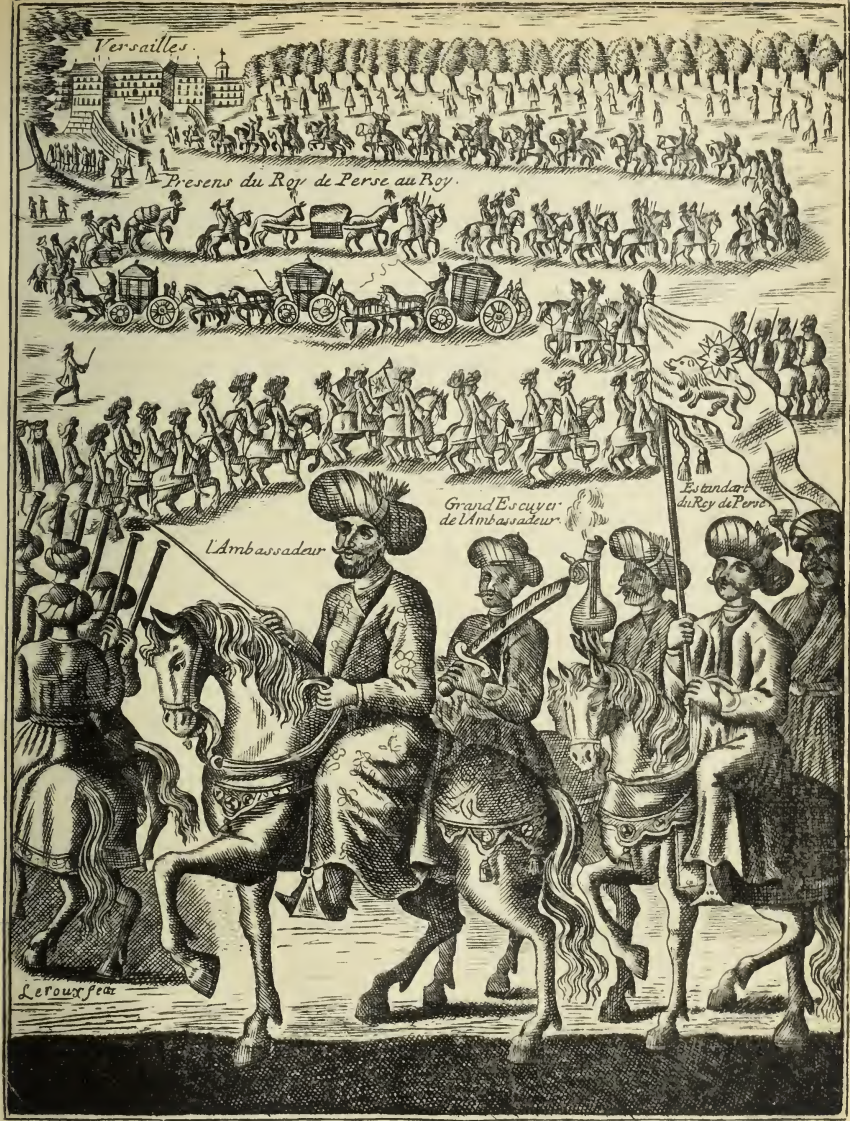 Versailles.
Presens du Roy de Perse au Roy.
l'Ambassadeur
Grand Escuyer
de l'Ambassadeur.
Estandart
du Roy de Perse
Leroux fecit